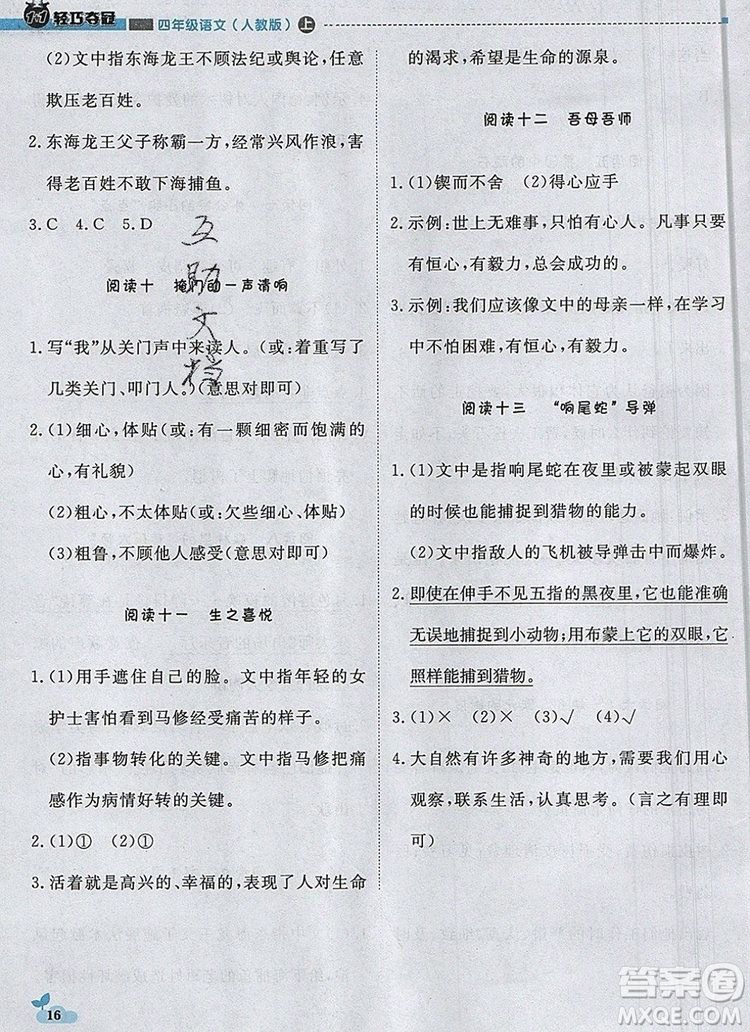 1+1轻巧夺冠 四年级语文（人教版）上
(2)文中指东海龙王不顾法纪或舆论，任意
欺压老百姓。
2. 东海龙王父子称霸一方，经常兴风作浪，害
得老百姓不敢下海捕鱼。
3. C 4. C 5. D
阅读十 掩门的一声清响
1. 写“我”从关门声中来读人。（或：着重写了
几类关门、叩门人。）（意思对即可）
2. (1)细心，体贴（或：有一颗细密而饱满的
心，有礼貌）
(2)粗心，不太体贴（或：欠些细心、体贴）
(3)粗鲁，不顾他人感受（意思对即可）
阅读十一 生之喜悦
1. (1)用手遮住自己的脸。文中指年轻的女
护士害怕看到马修经受痛苦的样子。
(2)指事物转化的关键。文中指马修把痛
感作为病情好转的关键。
2. (1)① (2)①
3. 活着就是高兴的、幸福的，表现了人对生命
的渴求，希望是生命的源泉。
阅读十二 吾母吾师
1. (1)锲而不舍 (2)得心应手
2. 示例：世上无难事，只怕有心人。凡事只要
有恒心，有毅力，总会成功的。
3. 示例：我们应该像文中的母亲一样，在学习
中不怕困难，有恒心，有毅力。
阅读十三 “响尾蛇”导弹
1. (1)文中是指响尾蛇在夜里或被蒙起双眼
的时候也能捕捉到猎物的能力。
(2)文中指敌人的飞机被导弹击中而爆炸。
2. 即使在伸手不见五指的黑夜里，它也能准确
无误地捕捉到小动物；用布蒙上它的双眼，它
照样能捕到猎物。
3. (1)× (2)× (3)√ (4)√
4. 大自然有许多神奇的地方，需要我们用心
观察，联系生活，认真思考。（言之有理即
可）
互助文档
16
答案圈
MXQE.COM